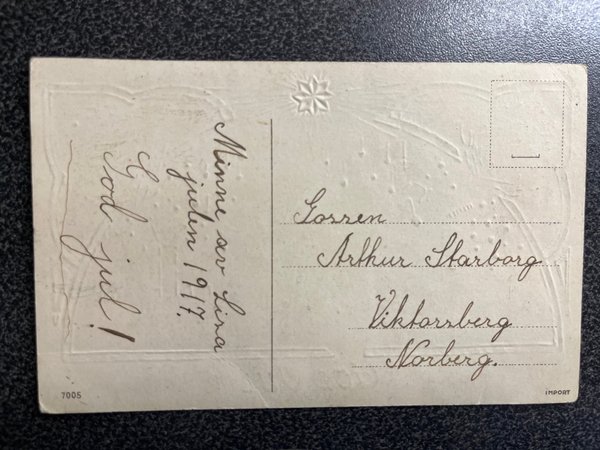 Minne av Lisa
julen 1917.
God jul!
Gossen
Arthur Starborg
Viktorsberg
Norberg.
7005
IMPORT